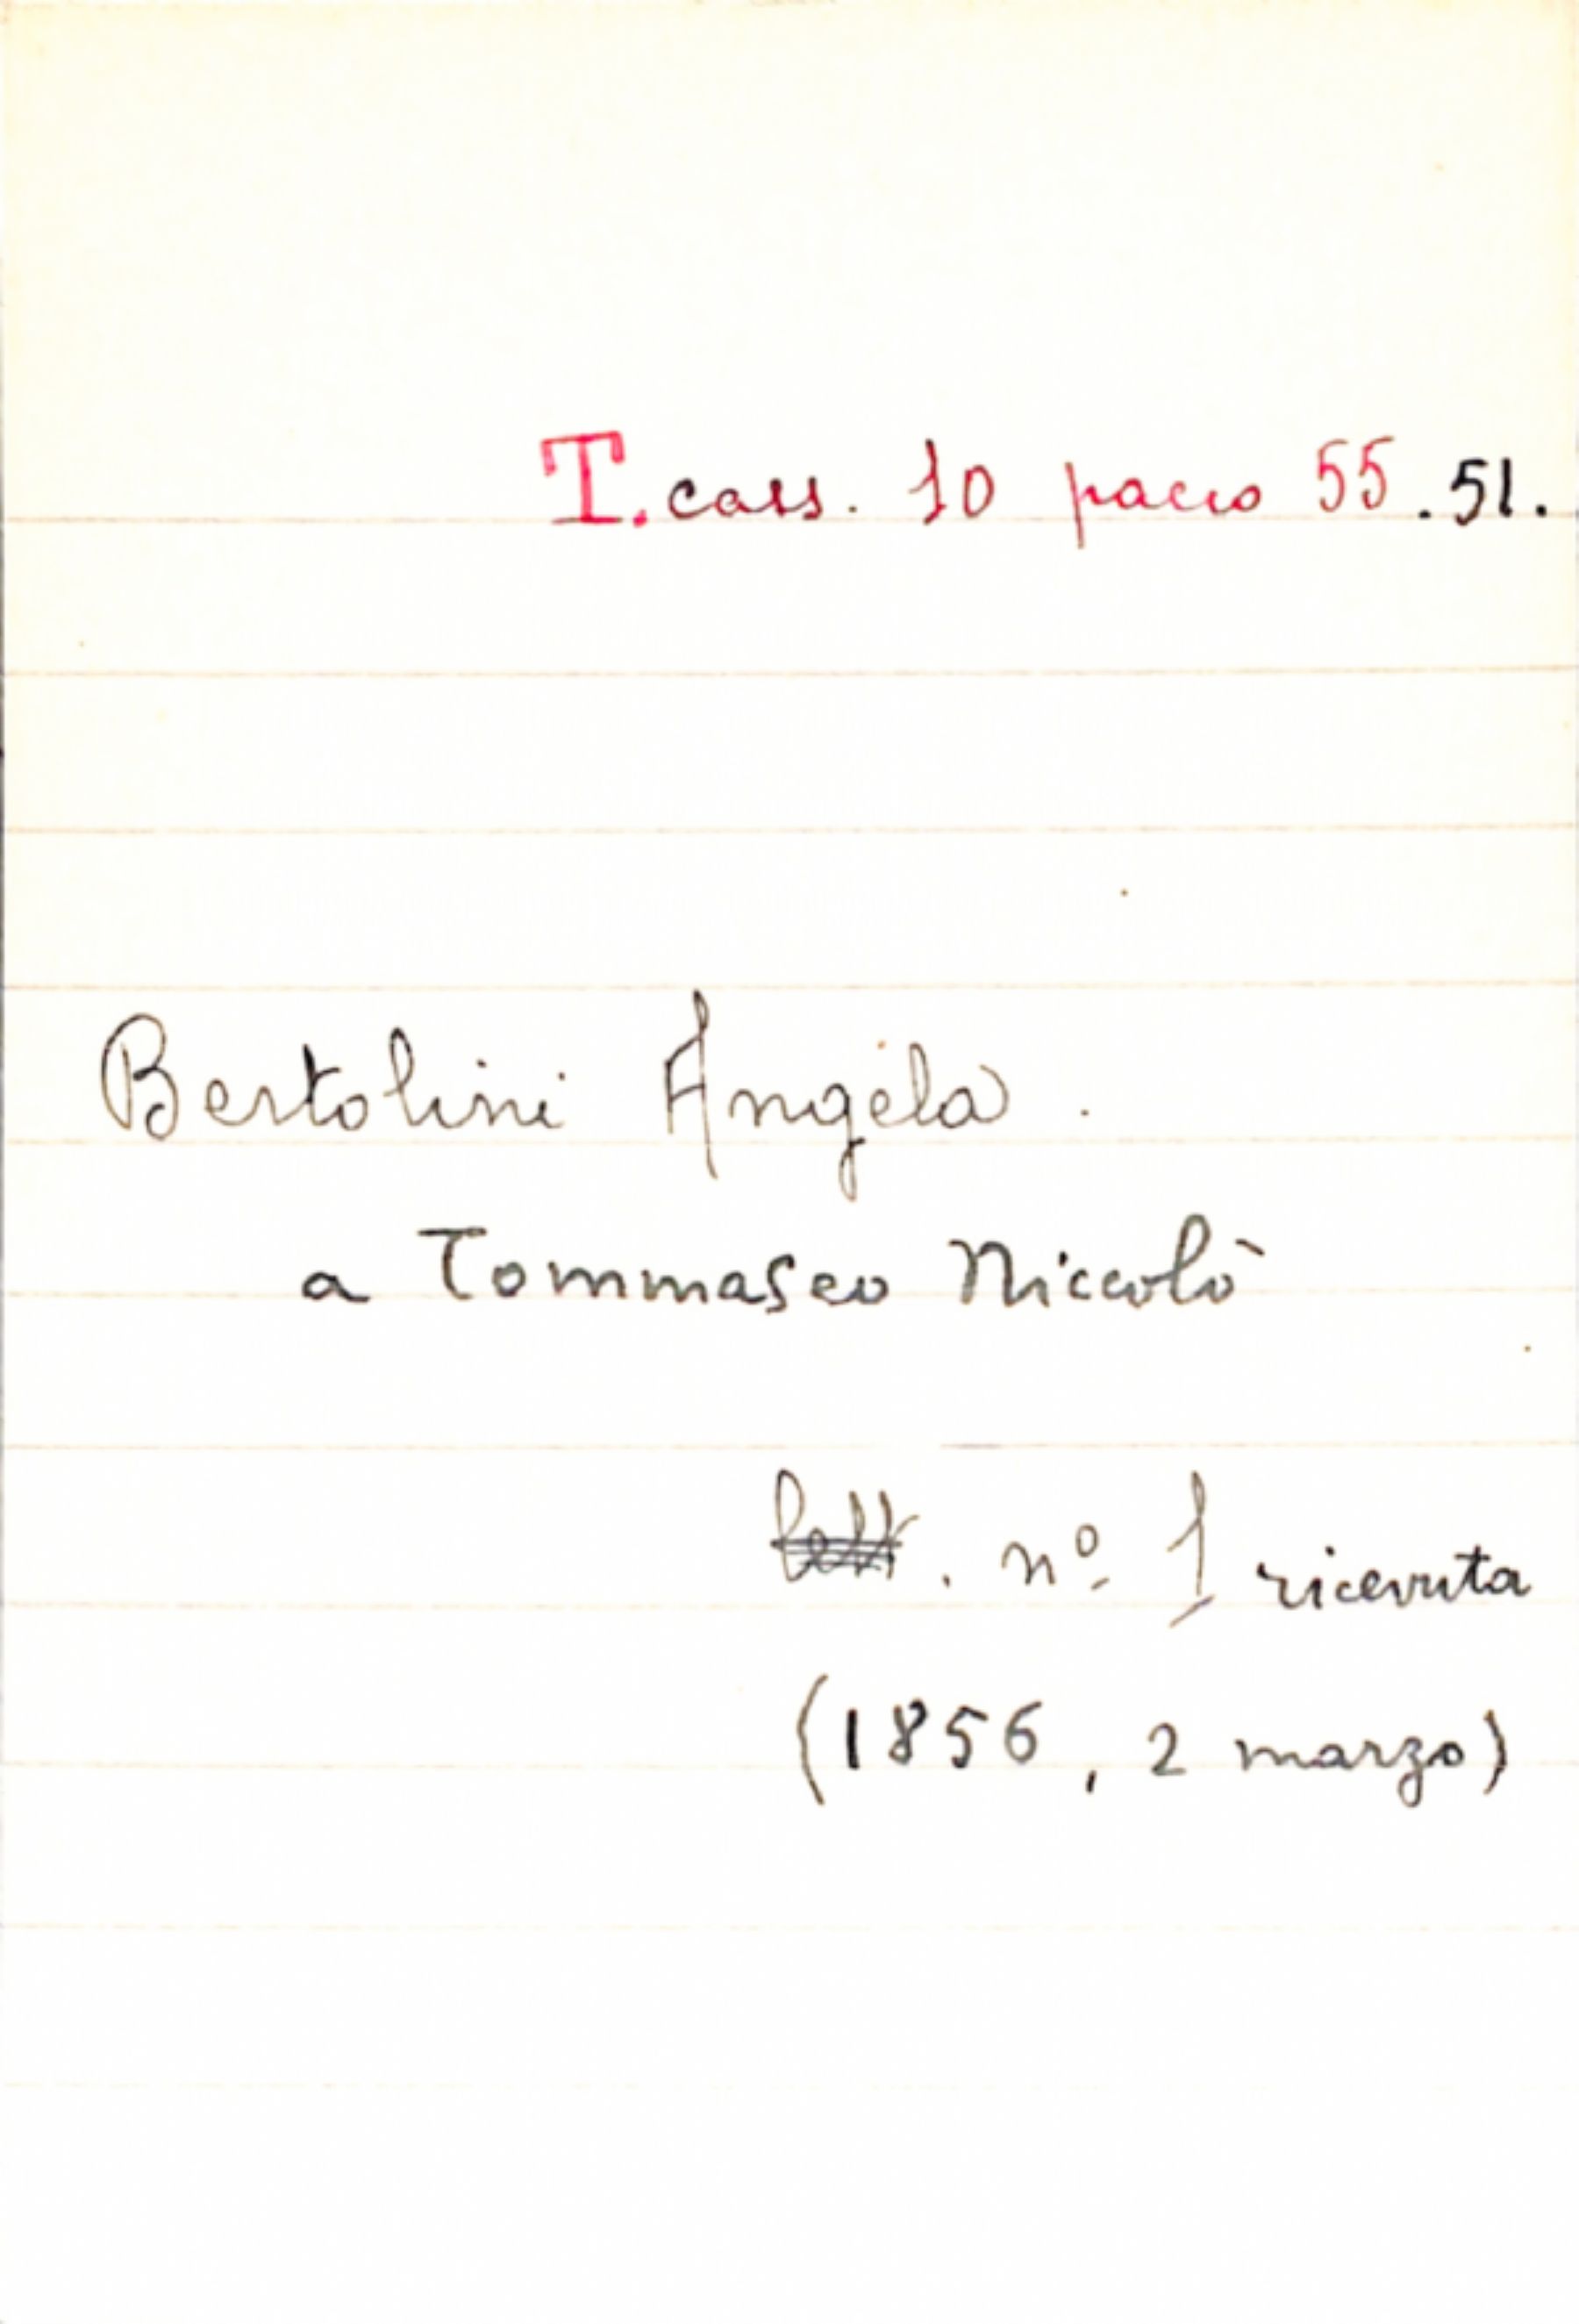 T. cass. 10 pacco 55.51.
Bertolini Angela.
a Tommaseo Niccolò
lett. nº 1 ricevuta
(1856, 2 marzo)